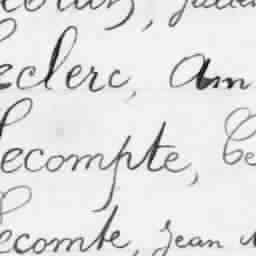 Leclerc, Am
Lecompte, Ce
Lecomte, Jean